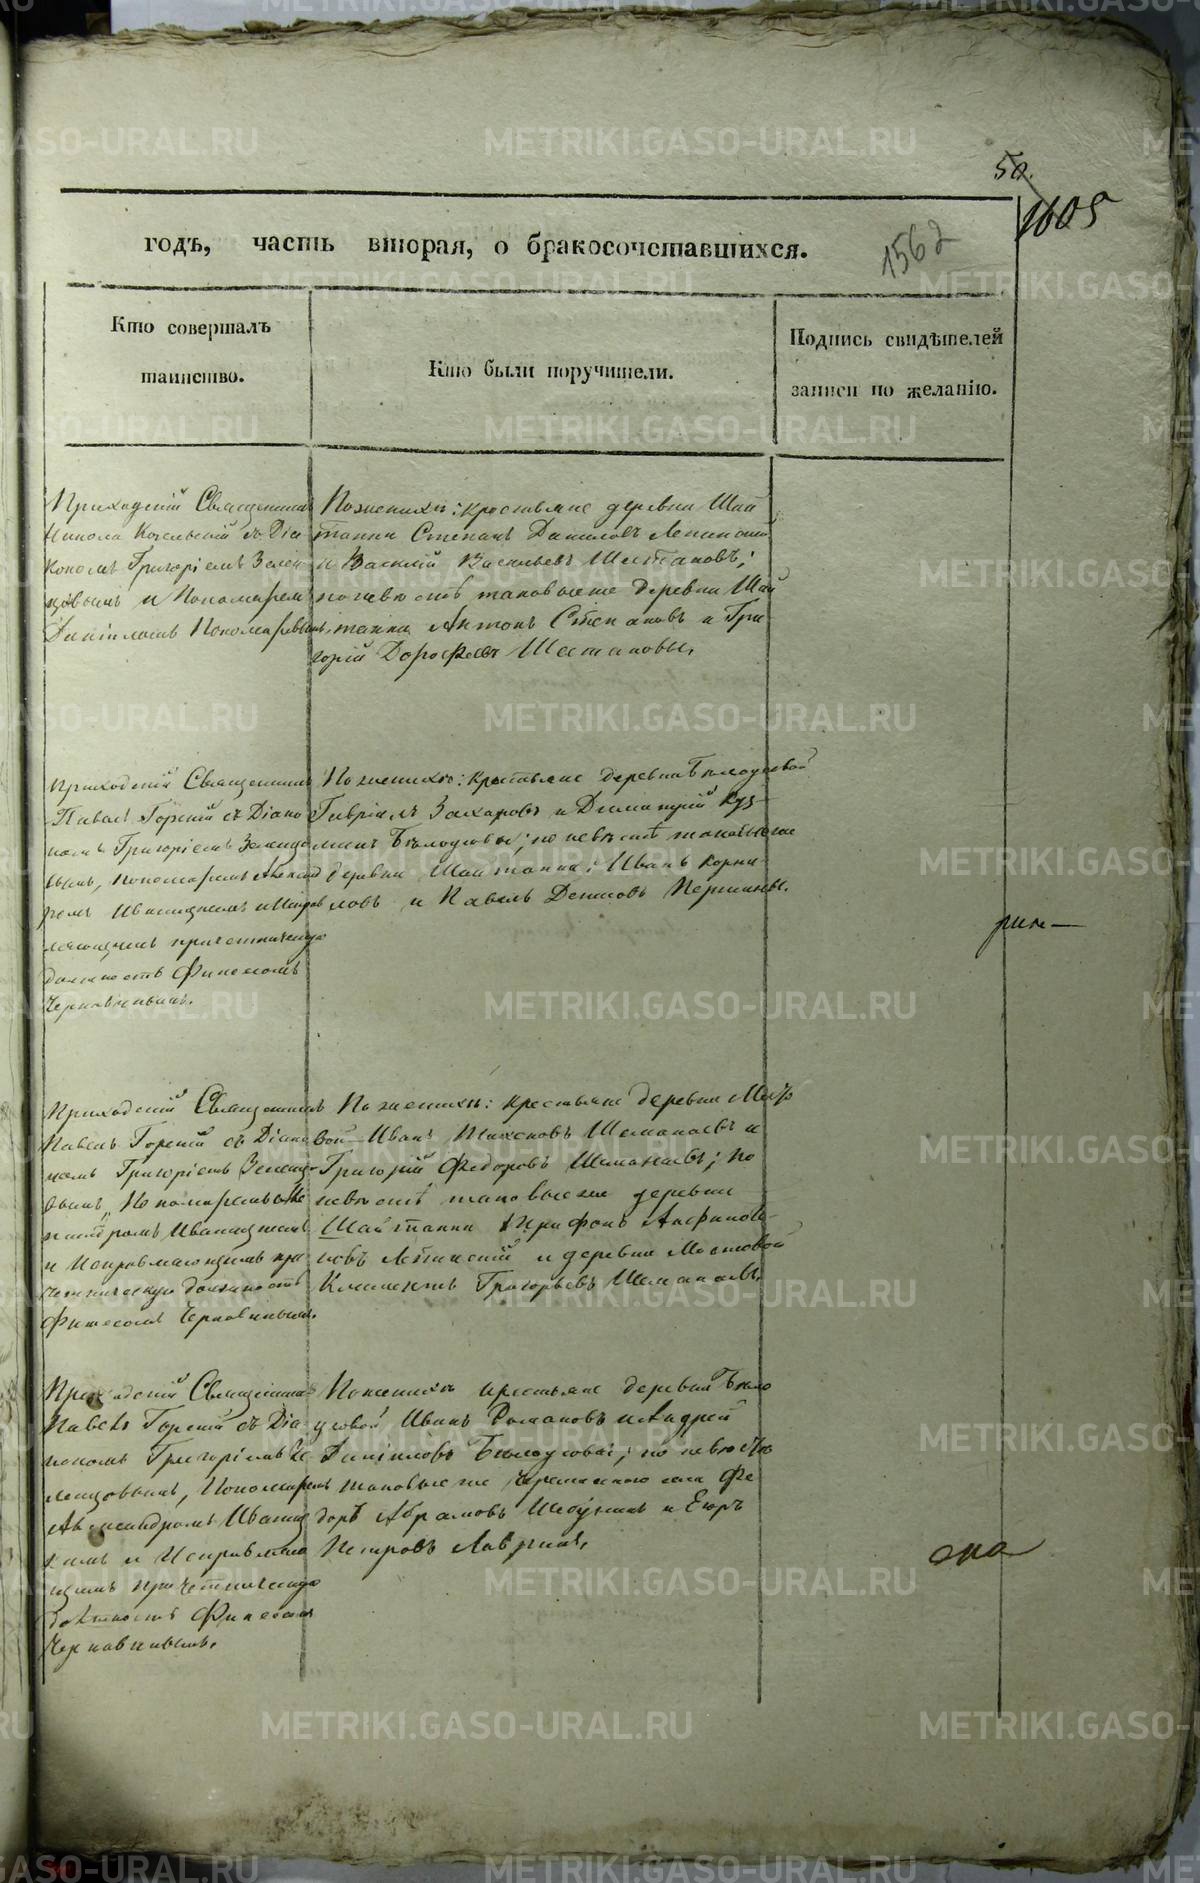 50.
1605
годъ, часть вторая, о бракосочетавшихся.
1562
Кто совершалъ
таинство.
Кто были поручители.
Подпись свидѣтелей
записи по желанію.
Приходскій Священникъ
Никола Козельскій съ Діа
кономъ Григоріемъ Зелен
цовымъ и Пономаремъ
Даніиломъ Пономаревымъ.
По женихѣ: крестьяне деревни Шай
танки Степанъ Даниловъ
и Василій Васильевъ Шестаковъ;
по невѣстѣ таковыеже деревни Шай
танки Антонъ Степановъ и Гри
горій Дорофеевъ Шестаковы.
Приходскій Священникъ
Павелъ Горскій съ Діако
номъ Григоріемъ Зеленцо
вымъ, пономаремъ Александ
ромъ Иваницкимъ и Исправ
ляющимъ причетническую
должность Финесомъ
Чернавинымъ.
По женихѣ: крестьяне деревни Бѣлоусовой
Гавріилъ Захаровъ и Димитрій Куз
минъ Бѣлоусовы; по невѣстѣ таковыеже
деревни Шайтанки: Иванъ Корни
ловъ и Павелъ Денисовъ Першины.
Приходскій Священникъ
Павелъ Горскій съ Діако
номъ Григоріемъ Зеленцо
вымъ, Пономаремъ Але
ксандромъ Иваницкимъ
и Исправляющимъ при
четническую должность
Финесомъ Чернавинымъ.
По женихѣ: крестьяне деревни
вой Иванъ Шеманаевъ и
Григорій Федоровъ Шеманаевъ; по
невѣстѣ таковыеже деревни
Шайтанки Трифонъ
и деревни Мостовой
Климентъ Григорьевъ Шеманаевъ.
Приходскій Священникъ
Павелъ Горскій съ Діа
кономъ Григоріемъ Зе
ленцовымъ, Пономаремъ
Александромъ Иваниц
кимъ и Исправляю
щимъ причетническую
должность Финесомъ
Чернавинымъ.
По женихѣ крестьяне деревни Бѣло
усовой Иванъ Романовъ и Андрей
Даніиловъ Бѣлоусовы; по невѣстѣ
таковыеже села Фе
доръ Абрамовъ и Егоръ
Петровъ Лаврин